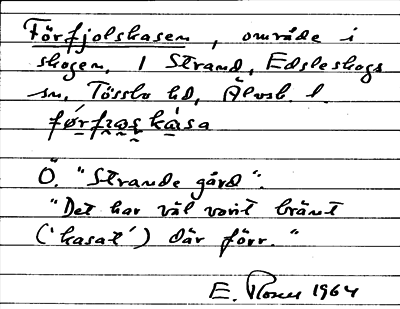 Förfjolskasen, område i
skogen, 1 Strand, Edsleskogs
sn, Tössbo hd, Älvsb. l.
Ö. "Strande gård".
"Det har väl vorit bränt
('kasat') där förr."
E. 1964